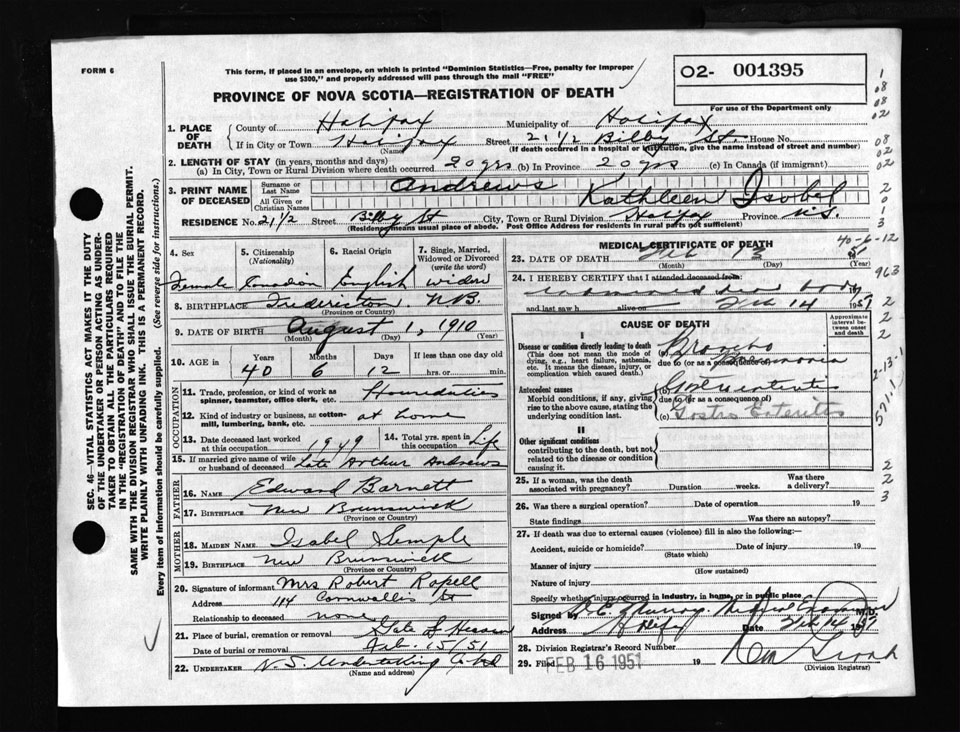 FORM 6
This form, if placed in an envelope, on which is printed "Dominion Statistics—Free, penalty for improper
use $300," and properly addressed will pass through the mail "FREE"
02- 001395
For use of the Department only
PROVINCE OF NOVA SCOTIA—REGISTRATION OF DEATH
1. PLACE OF DEATH
County of Halifax Municipality of Halifax
If in City or Town Halifax Street 21 1/2 Bilby St. House No.
(Name) (If death occurred in a hospital or institution, give the name instead of street and number)
2. LENGTH OF STAY (in years, months and days)
(a) In City, Town or Rural Division where death occurred 20 yrs (b) In Province 20 yrs (c) In Canada (if immigrant)
3. PRINT NAME OF DECEASED
Surname or Last Name Andrews
All Given or Christian Names Kathleen Isobel
RESIDENCE No. 21 1/2 Street Bilby St City, Town or Rural Division Halifax Province N.S.
(Residency means usual place of abode. Post Office Address for residents in rural parts not sufficient)
4. Sex 5. Citizenship (Nationality) 6. Racial Origin 7. Single, Married, Widowed or Divorced (write the word)
Female Canadian English widow
8. BIRTHPLACE Fredericton N.B.
(Province or Country)
9. DATE OF BIRTH August 1, 1910
(Month) (Day) (Year)
10. AGE in Years Months Days If less than one day old
40 6 12 hrs. or min.
OCCUPATION
11. Trade, profession, or kind of work as spinner, teamster, office clerk, etc. Housduties
12. Kind of industry or business, as cotton-mill, lumbering, bank, etc. at home
13. Date deceased last worked at this occupation 1949 14. Total yrs. spent in this occupation Life
15. If married give name of wife or husband of deceased Late Arthur Andrews
FATHER
16. NAME Edward Barnett
17. BIRTHPLACE New Brunswick
(Province or Country)
MOTHER
18. MAIDEN NAME Isabel Semple
19. BIRTHPLACE New Brunswick
(Province or Country)
20. Signature of informant Mrs Robert Ropell
Address 114 Cornwallis St
Relationship to deceased none
21. Place of burial, cremation or removal Gate of Heaven
Date of burial or removal Feb. 15/51
22. UNDERTAKER N.S. Undertaking Co Ltd
(Name and address)
MEDICAL CERTIFICATE OF DEATH
40-6-12
23. DATE OF DEATH Feb 13
(Month) (Day) (Year)
24. I HEREBY CERTIFY that I attended deceased from:
dead body
and last saw h alive on Feb 14 1951
CAUSE OF DEATH
Approximate interval between onset and death
I
Disease or condition directly leading to death
(This does not mean the mode of dying, e.g., heart failure, asthenia, etc. It means the disease, injury, or complication which caused death.)
(a) Broncho
due to (or as a consequence of) Pneumonia
Antecedent causes
Morbid conditions, if any, giving rise to the above cause, stating the underlying condition last.
(b)
due to (or as a consequence of)
(c) Gastro Enteritis
II
Other significant conditions contributing to the death, but not related to the disease or condition causing it.
25. If a woman, was the death associated with pregnancy? Duration weeks. Was there a delivery?
26. Was there a surgical operation? Date of operation 19
State findings Was there an autopsy?
27. If death was due to external causes (violence) fill in also the following:
Accident, suicide or homicide? Date of injury 19
(State which)
Manner of injury
(How sustained)
Nature of injury
Specify whether injury occurred in industry, in home, or in public place
Signed by Murray. Medical Examiner M.D.
Address Hfx Date Feb 14 1951
28. Division Registrar's Record Number
29. Filed FEB 16 1951 19
(Division Registrar)
SEC. 46—VITAL STATISTICS ACT MAKES IT THE DUTY
OF THE UNDERTAKER OR PERSON ACTING AS UNDER-
TAKER TO OBTAIN ALL THE PARTICULARS REQUIRED
IN THE "REGISTRATION OF DEATH" AND TO FILE THE
SAME WITH THE DIVISION REGISTRAR WHO SHALL ISSUE THE BURIAL PERMIT.
WRITE PLAINLY WITH UNFADING INK. THIS IS A PERMANENT RECORD.
Every item of information should be carefully supplied. (See reverse side for instructions.)
1
08
08
02
08
02
02
2
0
1
3
963
2
2
2
2-13-1
5711
2
2
3